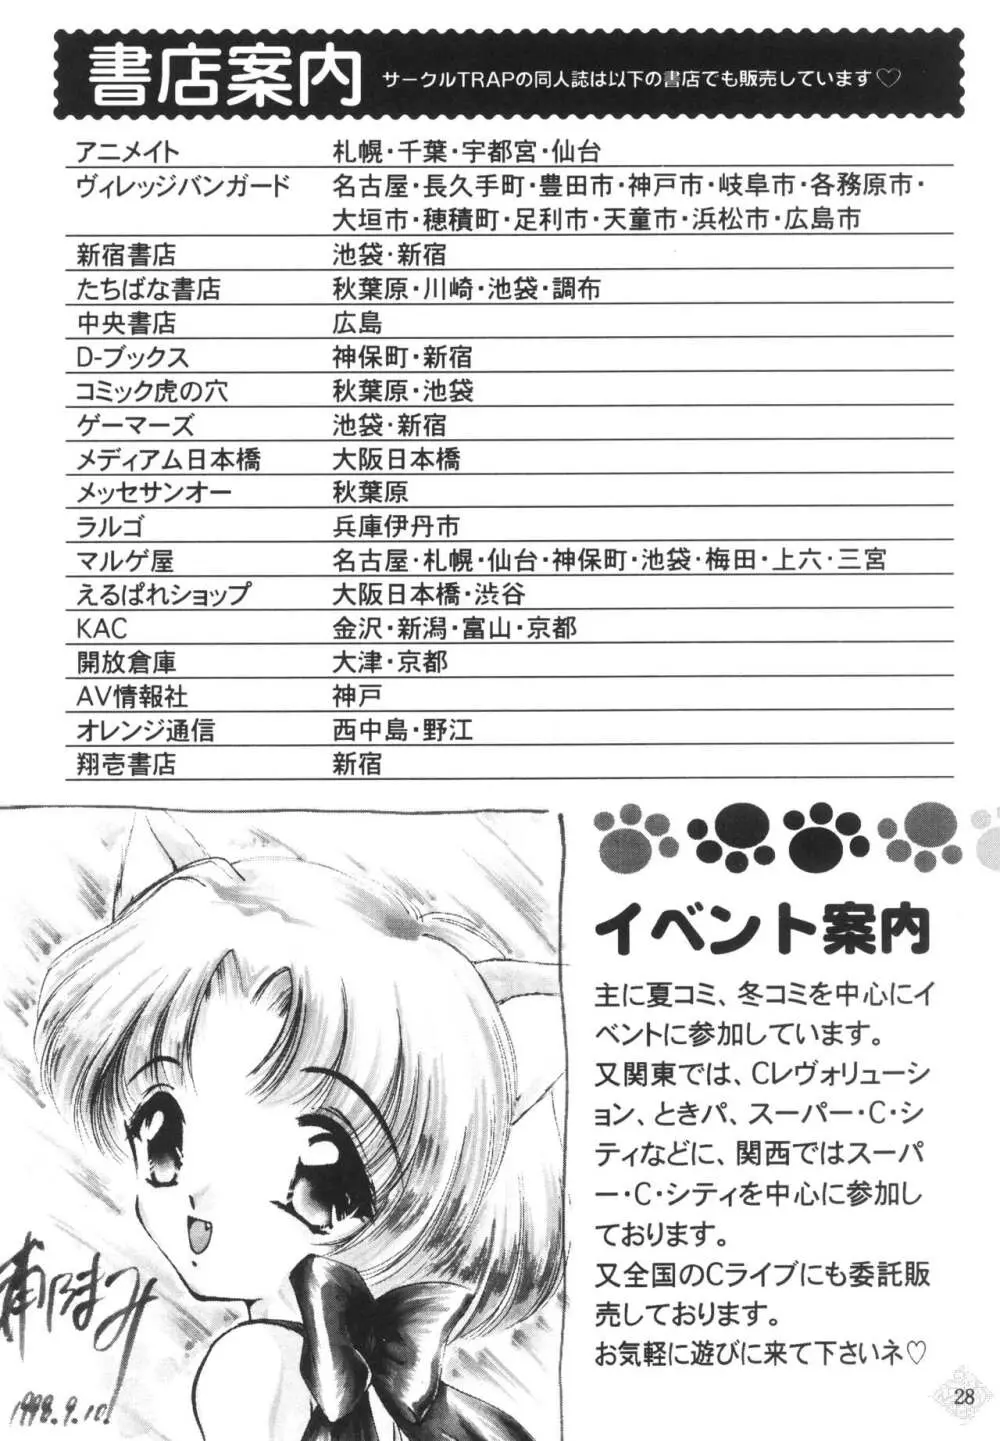 書店案内
サークルTRAPの同人誌は以下の書店でも販売しています♡
アニメイト 札幌・千葉・宇都宮・仙台
ヴィレッジバンガード 名古屋・長久手町・豊田市・神戸市・岐阜市・各務原市・
大垣市・穂積町・足利市・天童市・浜松市・広島市
新宿書店 池袋・新宿
たちばな書店 秋葉原・川崎・池袋・調布
中央書店 広島
D-ブックス 神保町・新宿
コミック虎の穴 秋葉原・池袋
ゲーマーズ 池袋・新宿
メディアム日本橋 大阪日本橋
メッセサンオー 秋葉原
ラルゴ 兵庫伊丹市
マルゲ屋 名古屋・札幌・仙台・神保町・池袋・梅田・上六・三宮
えるぱれショップ 大阪日本橋・渋谷
KAC 金沢・新潟・富山・京都
開放倉庫 大津・京都
AV情報社 神戸
オレンジ通信 西中島・野江
翔壱書店 新宿
イベント案内
主に夏コミ、冬コミを中心にイ
ベントに参加しています。
又関東では、Cレヴォリューシ
ョン、ときパ、スーパー・C・シ
ティなどに、関西ではスーパ
ー・C・シティを中心に参加し
ております。
又全国のCライブにも委託販
売しております。
お気軽に遊びに来て下さいネ♡
まみ
1998.9.10!
28